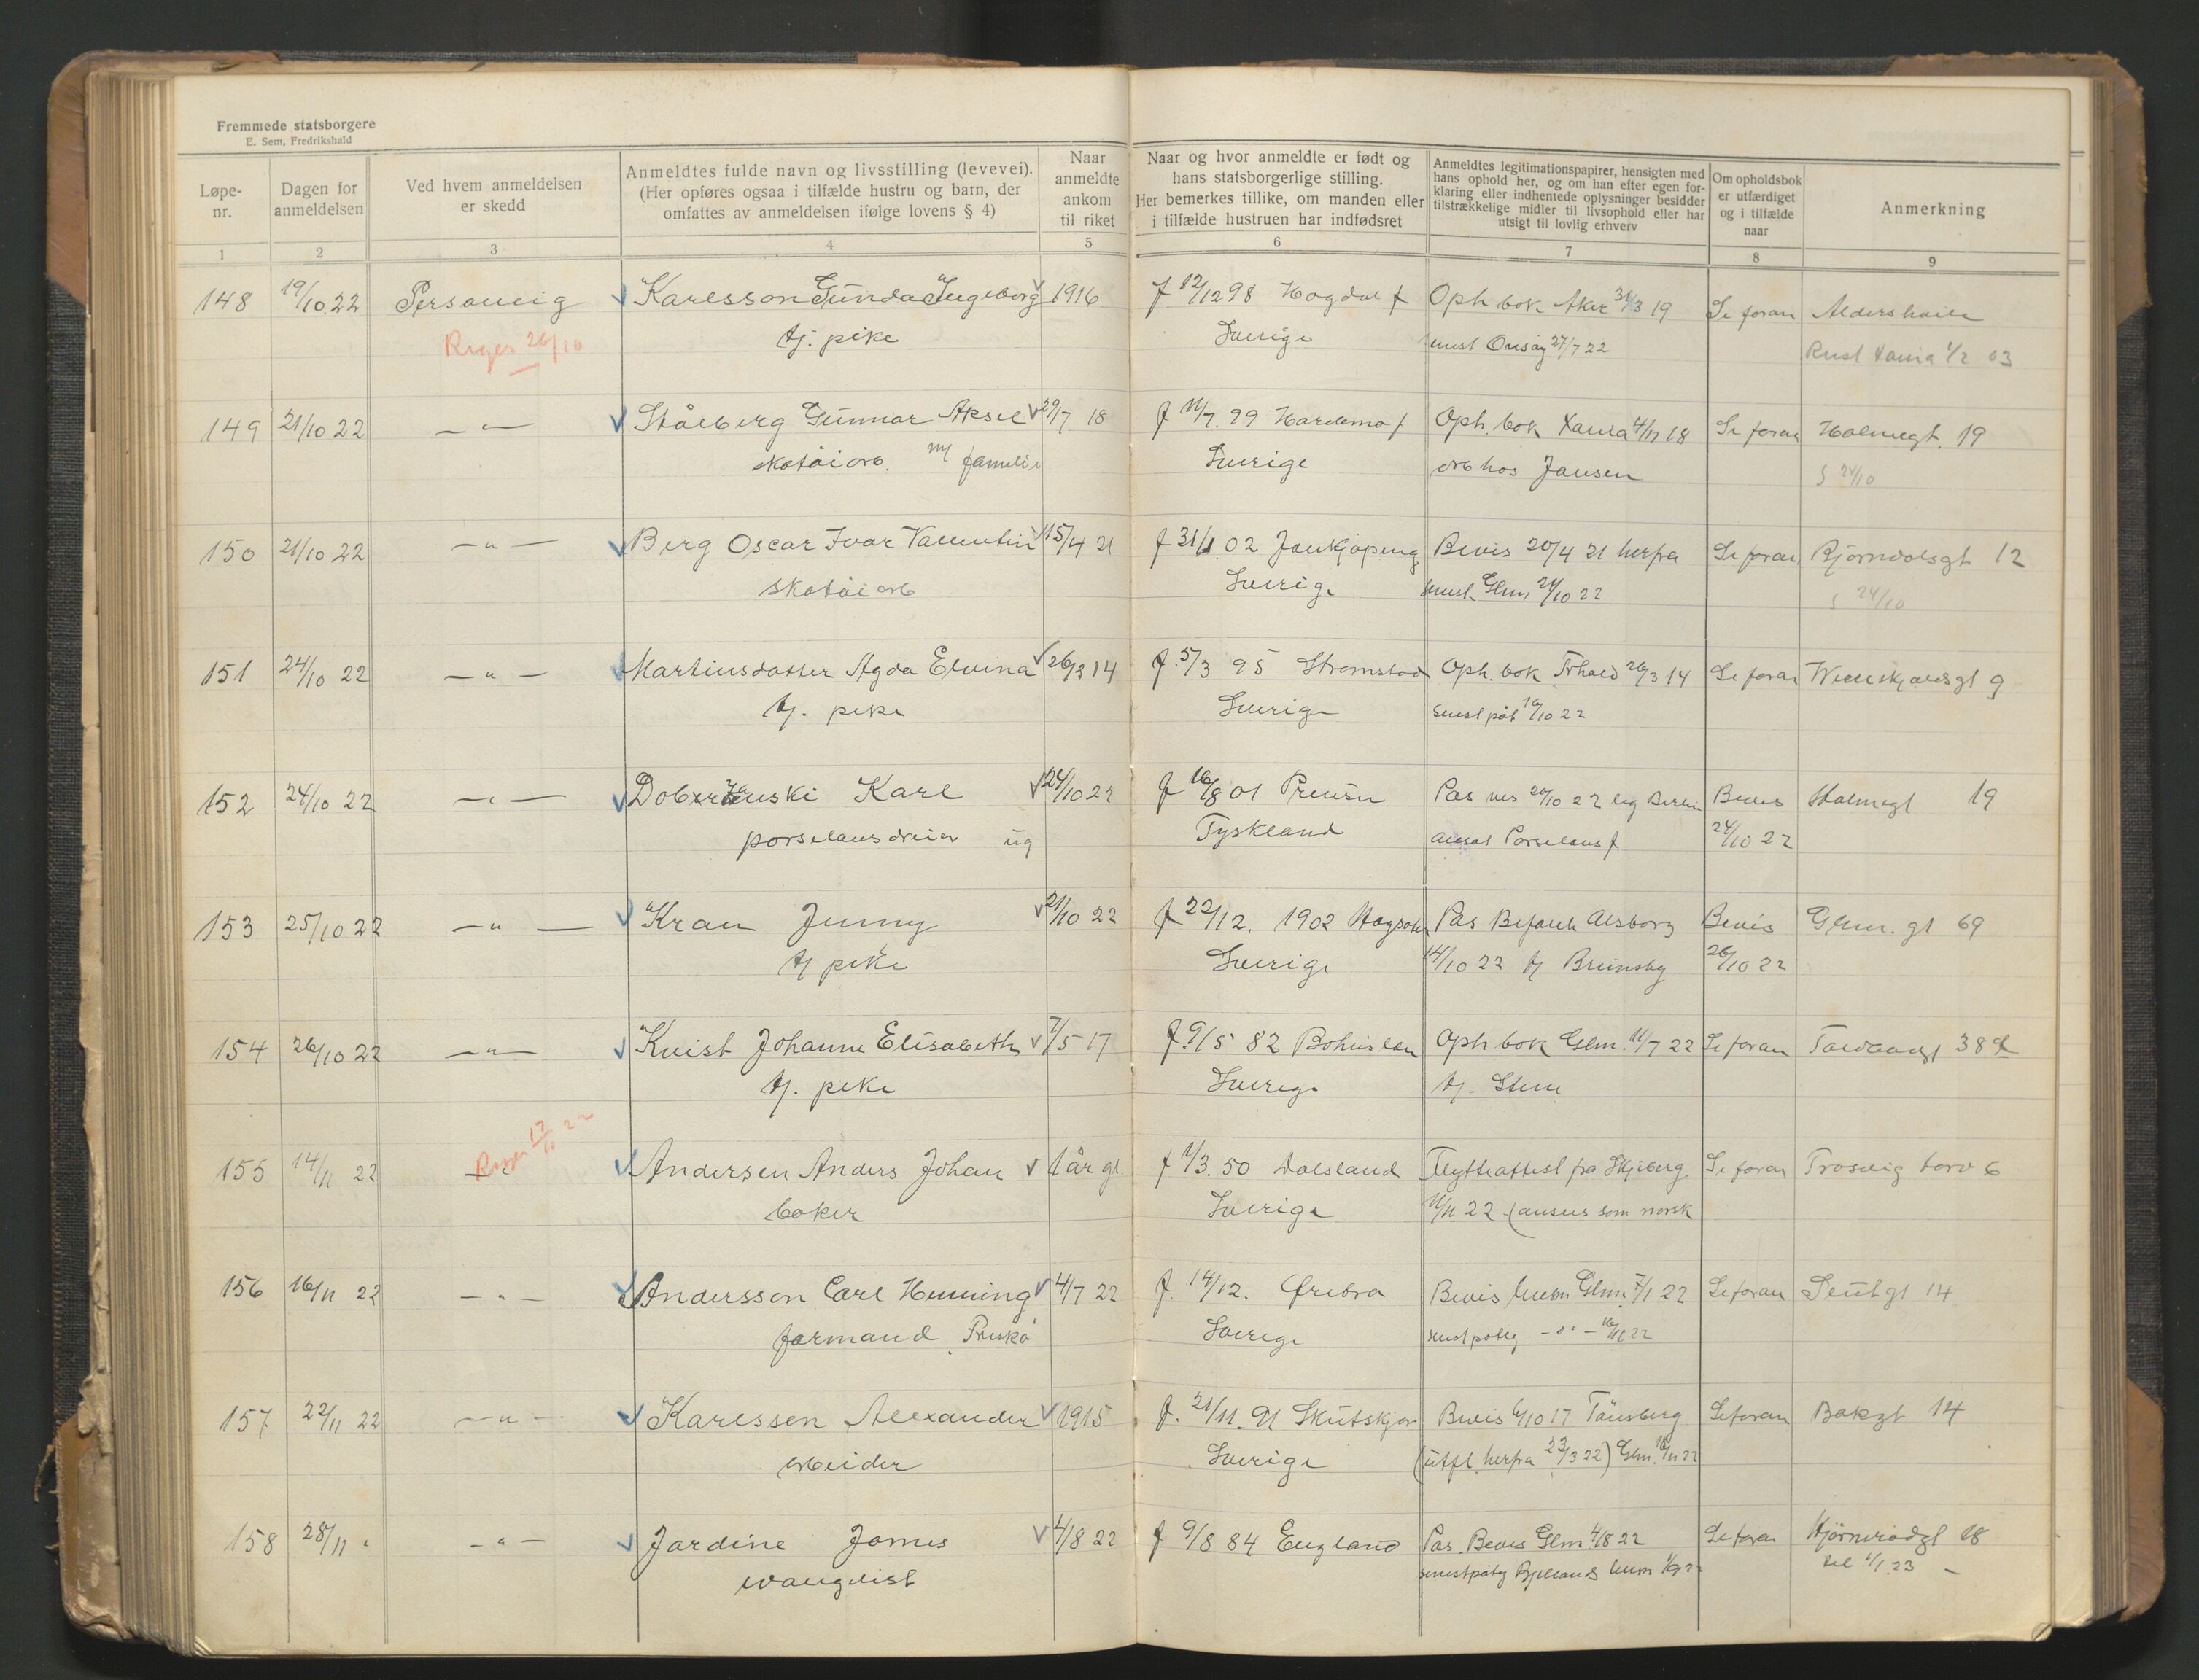 Fremmede statsborgere
E. Sem, Fredrikshald
Løpe-
nr.
Dagen for
anmeldelsen
Ved hvem anmeldelsen
er skedd
Anmeldtes fulde navn og livsstilling (levevei).
(Her opføres ogsaa i tilfælde hustru og barn, der
omfattes av anmeldelsen ifølge lovens § 4)
Naar
anmeldte
ankom
til riket
Naar og hvor anmeldte er født og
hans statsborgerlige stilling.
Her bemerkes tillike, om manden eller
i tilfælde hustruen har indfødsret
Anmeldtes legitimationspapirer, hensigten med
hans ophold her, og om han efter egen for-
klaring eller indhentede oplysninger besidder
tilstrækkelige midler til livsophold eller har
utsigt til lovlig erhverv
Om opholdsbok
er utfærdiget
og i tilfælde
naar
Anmerkning
1 2 3 4 5 6 7 8 9
148 19/10 22 Personlig Karlsson Gunda Ingeborg 1916 f 12/12 98 Hogdal f Oph bok Aker 31/3 19 Se foran
Reges 26/10 tj. pike Sverige senst Onsøy 27/7 22 1/2 03
149 21/10 22 — " — Stålberg Gunnar Aksel 29/7 18 f 11/7. 99 Hardemo f Oph. bok Xania 4/11 18 Se foran Holmegt. 19
skotøiarb. m/ familie Sverige arb hos Jansen 24/10
150 21/10 22 — " — Berg Oscar Ivar Valentin 15/4 21 f 31/1 02 Jönkjöping Bevis 20/4 21 herfra Se foran Bjørndalsgt 12
skotøiarb Sverige senst Glm 21/10 22 24/10
151 24/10 22 — " — Martinsdatter Agda Elvina 26/3 14 f. 5/3 95 Strømstad Oph. bok Frhald 26/3 14 Se foran 9
tj. pike Sverige senst påt 16/10 22
152 24/10 22 — " — Karl 24/10 22 f 16/8 01 Preusen Pas 20/10 22 leg Berlin Bevis Holmegt 19
porselansdreier ug Tyskland ansat Porselans f 24/10 22
153 25/10 22 — " — Kran Jenny 21/10 22 f 22/12. 1902 Pas Befanh Alsborg Bevis Glm. gt 69
tj pike Sverige 14/10 22 tj Brunsby 26/10 22
154 26/10 22 — " — Kvist Johanne Elisabeth 7/5 17 f. 9/5 82 Bohuslen Oph bok Glm. 11/7 22 Se foran 38
tj. pike Sverige tj.
155 14/11 22 Andersen Anders Johan 1 år gl. f 1/3. 50 Dalsland Flytteattest fra Skjeberg Se foran Trosvig torv 6
baker Sverige 11/11 22 (anses som norsk
156 16/11 22 — " — Andersson Carl Henning 4/7 22 f. 14/12. Ørebro Bevis Glm. 7/1 22 Se foran 14
formand Sverige senst påteg — " — 16/11 22
157 22/11 22 — " — Karlssen Alexander 1915 f. 21/11. 91 Skutskjær Bevis 6/10 17 Tønsberg Se foran Bakgt 14
arbeider Sverige (utfl. herfra 23/3 22) Glm. 18/11 22
158 28/11 " — " — Jardine James 4/8 22 f 9/8 84 England Pas. Bevis Glm 4/8 22 Se foran 18
evangelist senst påteg Bjelland til 1/1 23